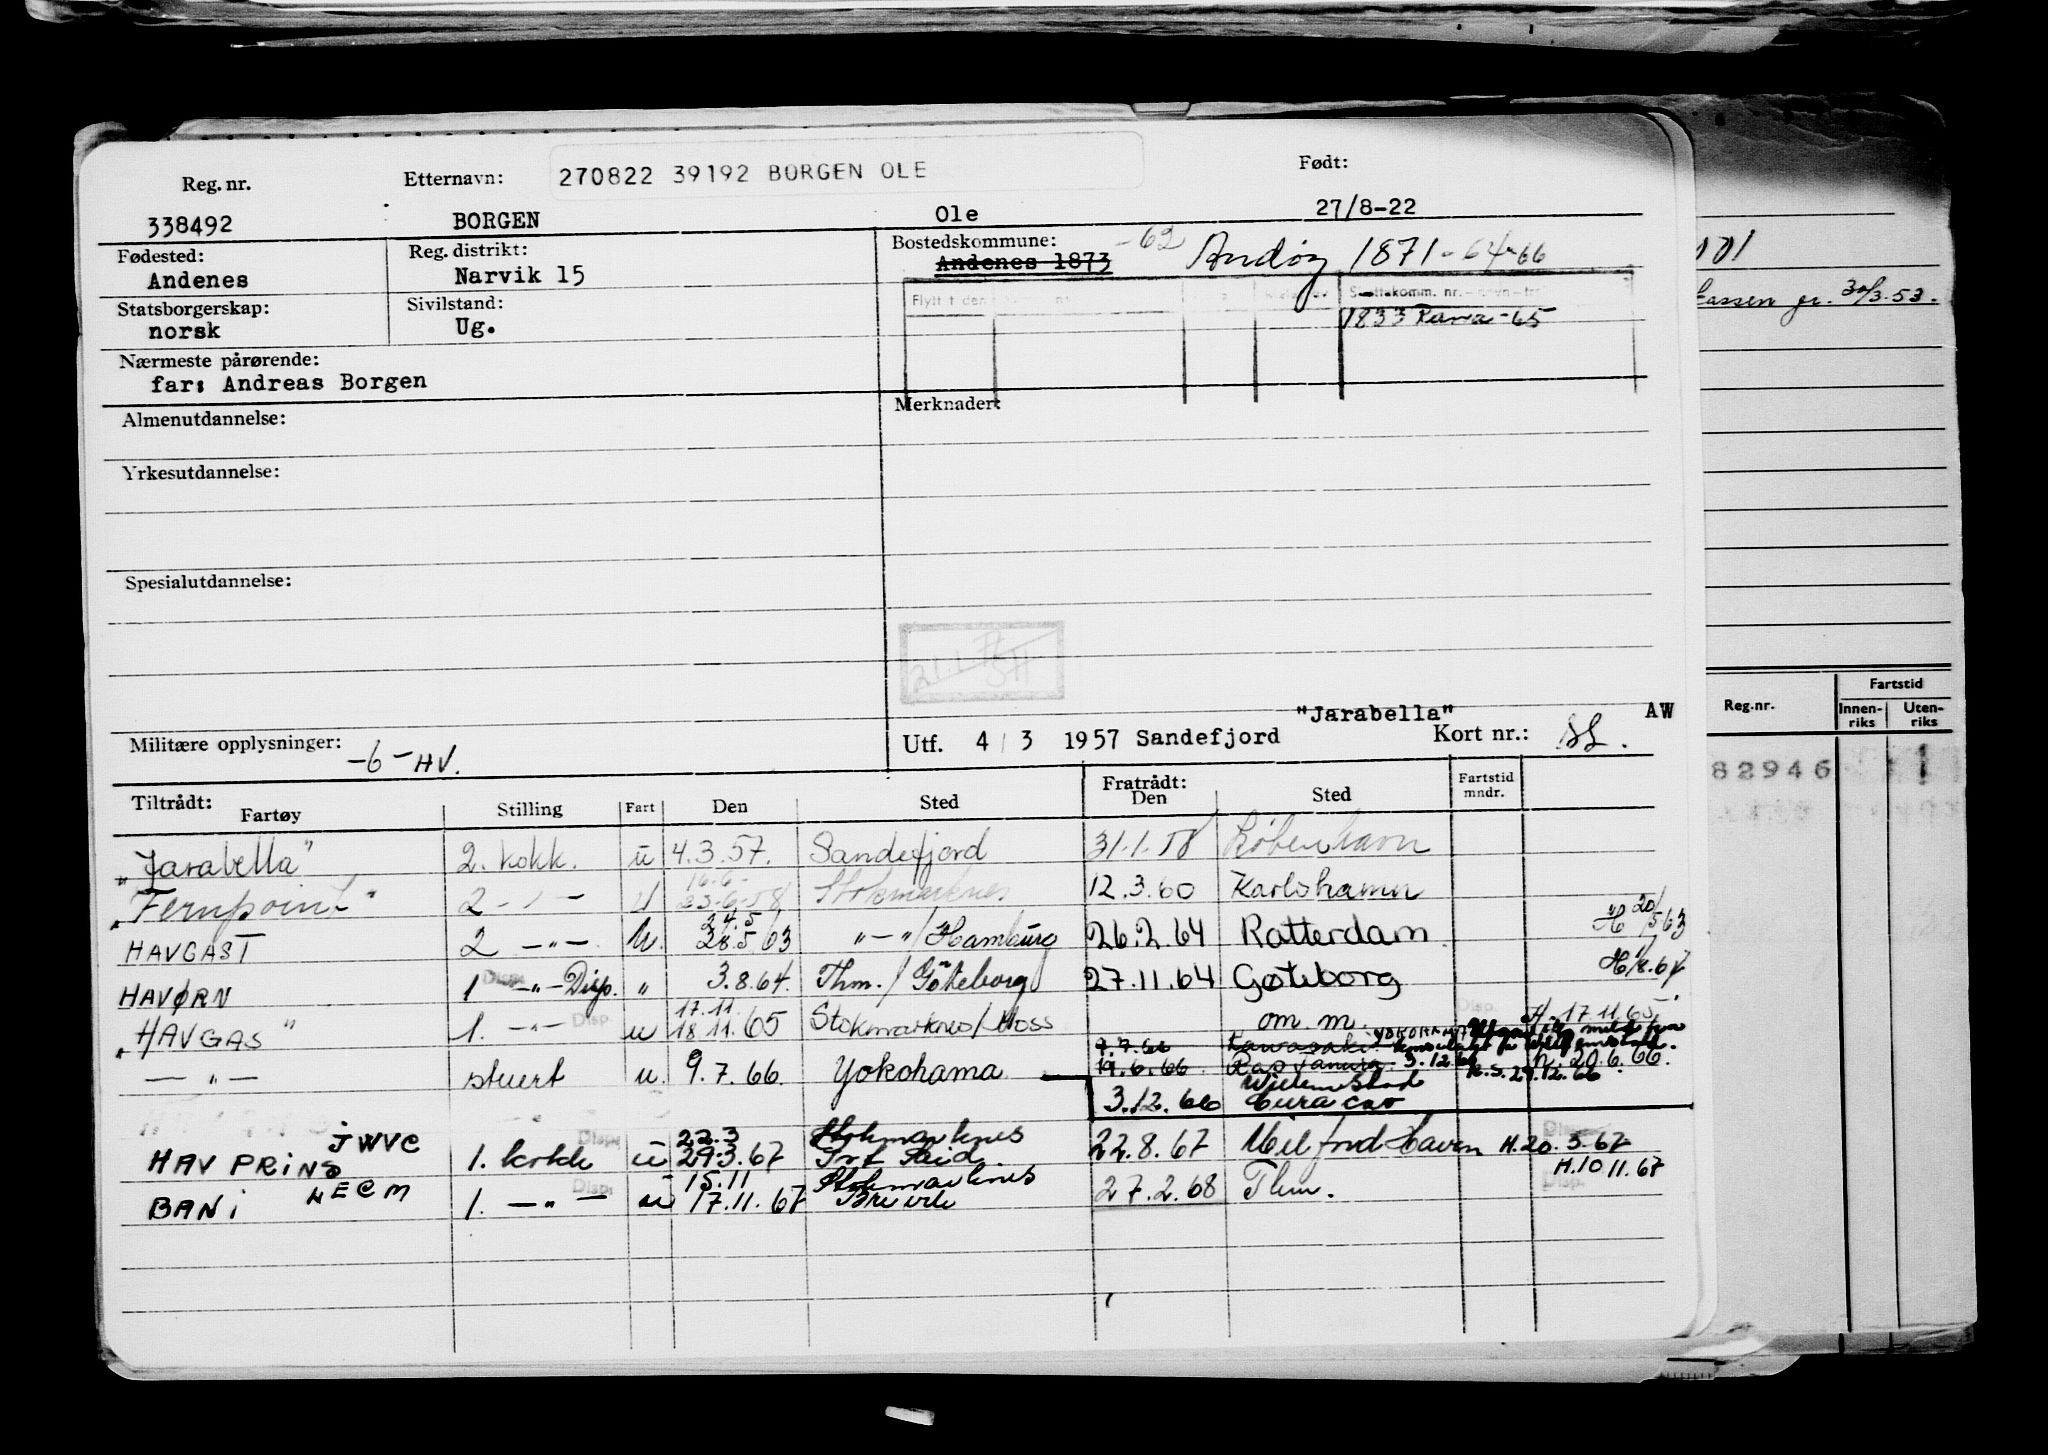 Reg. nr. Etternavn: 270822 39192 BORGEN OLE Født:
338492 BORGEN Ole 27/8-22
Fødested: Reg. distrikt: Bostedskommune: -62 Andøy 1871-64-66
Andenes Narvik 15 Andenes 1873
Statsborgerskap: Sivilstand:
norsk Ug.
1833 Rana-65
Nærmeste pårørende:
far: Andreas Borgen
Almenutdannelse: Merknader:
Yrkesutdannelse:
Spesialutdannelse:
"Jarabella" AW
Militære opplysninger: -6-HV. Utf. 4/3 1957 Sandefjord Kort nr.:
Tiltrådt: Fratrådt: Fartstid mndr.
Fartøy Stilling Fart Den Sted Den Sted
"Jarabella" 2. kokk. u 4.3.57. Sandefjord 31.1.58 København
16.6-
"Fernpoint" 2 - " - U 23.6.58 Stokmarknes 12.3.60 Karlshamn
24.5
HAVGAST 2 -"- U. 28.5.63 "-"/Hamburg 26.2.64 Rotterdam H 20/5 63
HAVØRN 1 -"- Disp. " 3.8.64. Thm./Göteborg 27.11.64 Gøteborg
17.11.
"HAVGAS" 1. -"- Disp. u 18.11.65 Stokmarknes/Moss om m. H. 17.11.65
7.7.66 Kawasaki YOKOHAMA
-"- stuert u. 9.7.66. Yokohama 19.6.66 Ras Tanura 3.12.66 H. 20.6.66.
R.S. 29.12.66
3.12.66 Willemstad Curacao
22.3 Stokmarknes
HAV PRINS JWVC 1. kokk u 29.3.67 Prt Said 22.8.67 Milford Haven H. 20.3.67
15.11 Stokmarknes H. 10 11.67
BANI LECM 1. -"- u 17.11.67 Brevik 27.2.68 Thm.
101
30/3.53.
Reg.nr. Fartstid
Innen-riks Uten-riks
82946 1